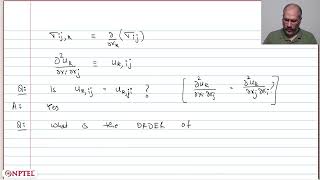 σij,k ≡ ∂/∂xk (σij)
∂²uk/∂xi ∂xj ≡ uk,ij
Q: is uk,ij = uk,ji ? [ ∂²uk/∂xi ∂xj = ∂²uk/∂xj ∂xi ]
A: Yes
Q: what is the ORDER of
NPTEL